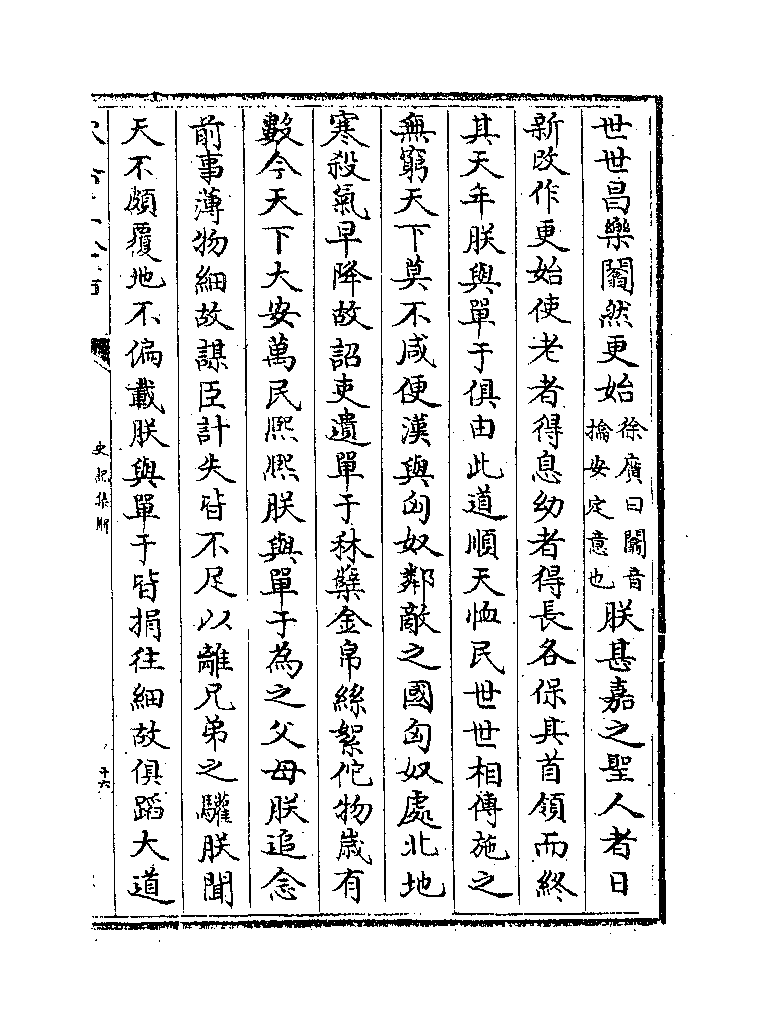 世世昌樂闟然更始徐廣曰闟音搶安定意也朕甚嘉之聖人者日
新改作更始使老者得息幼者得長各保其首領而終
其天年朕與單于俱由此道順天恤民世世相傳施之
無窮天下莫不咸便漢與匈奴鄰敵之國匈奴處北地
寒殺氣早降故詔吏遺單于秫櫱金帛絲絮佗物歲有
數今天下大安萬民熙熙朕與單于為之父母朕追念
前事薄物細故謀臣計失皆不足以離兄弟之驩朕聞
天不頗覆地不偏載朕與單于皆捐往細故俱蹈大道
史記集解
十六